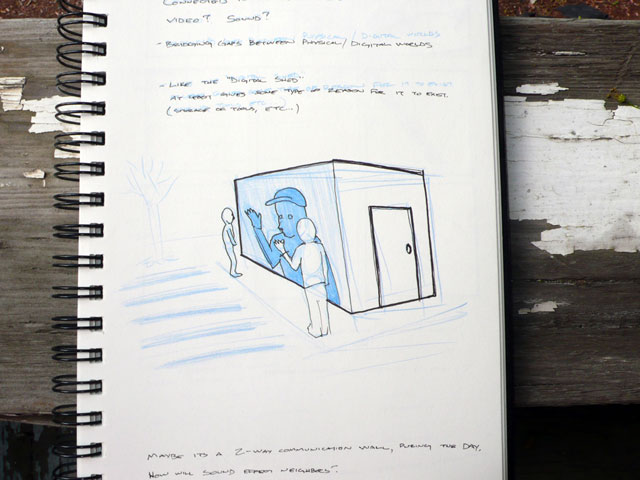 CONNECTED TO
VIDEO? SOUND?
- BRIDGING GAPS BETWEEN PHYSICAL/DIGITAL WORLDS
- LIKE THE "DIGITAL SHED"
AT LEAST GIVES SOME TYPE OF REASON FOR IT TO EXIST.
(STORAGE OF TOOLS, ETC.)
MAYBE ITS A 2-WAY COMMUNICATION WALL, DURING THE DAY.
HOW WILL SOUND EFFECT NEIGHBORS?